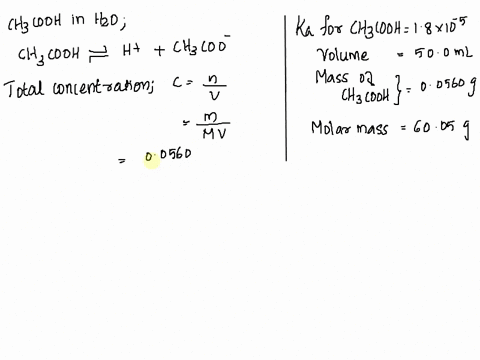 CH3COOH in H2O;
CH3COOH ⇌ H+ + CH3COO⁻
Total concentration; C = n/V
= m/MV
= 0.0560
Ka for CH3COOH = 1.8×10⁻⁵
Volume = 50.0 mL
Mass of CH3COOH } = 0.0560 g
Molar mass = 60.05 g